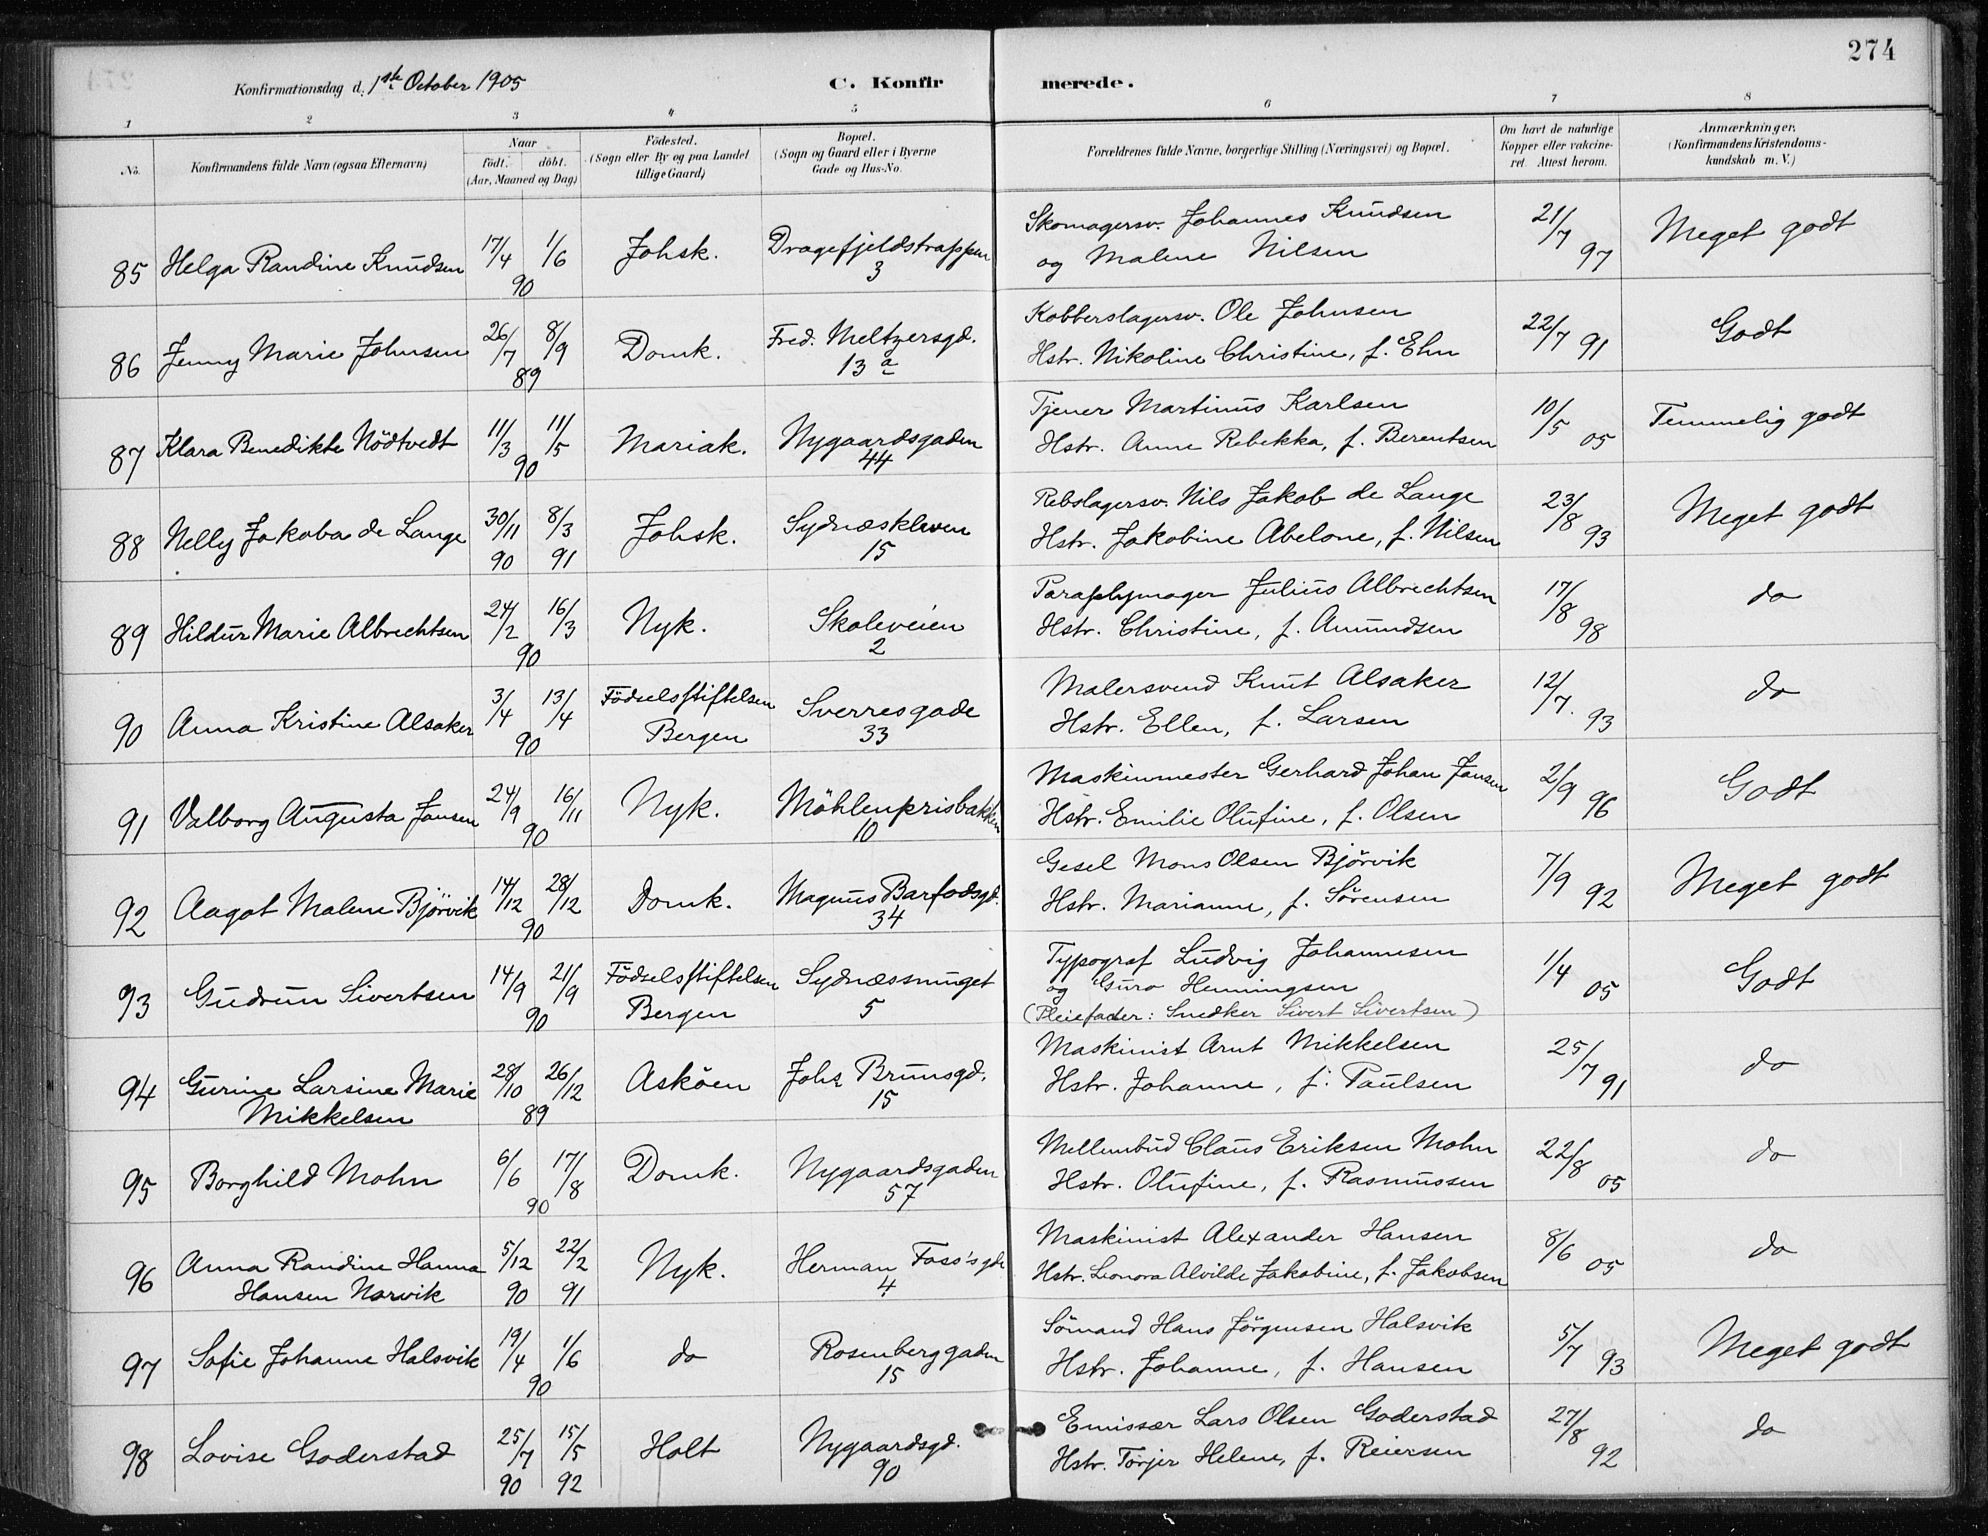 274
Konfirmationsdag d. 1ste October 1905
C. Konfirmerede.
1 2 3 4 5 6 7 8
No.
Konfirmandens fulde Navn (ogsaa Efternavn)
Naar
födt. döbt.
(Aar, Maaned og Dag)
Födested.
(Sogn eller By og paa Landet
tillige Gaard)
Bopæl.
(Sogn og Gaard eller i Byerne
Gade og Hus-No.
Forældrenes fulde Navne, borgerlige Stilling (Næringsvei) og Bopæl.
Om havt de naturlige
Kopper eller vakcine-
ret. Attest herom.
Anmærkninger.
(Konfirmandens Kristendoms-
kundskab m. V.)
85 Helga Randine Knudsen 17/4 1/6 90 Johsk. Dragefjeldstrappen 3
Skomagersv. Johannes Knudsen
og Malene Nilsen
21/7 97 Meget godt
86 Jenny Marie Johnsen 26/7 8/9 89 Domk. Fred. Meltzersgd. 13 a
Kobberslagersv. Ole Johnsen
Hstr. Nikoline Christine, f. Ehn
22/7 91 Godt
87 Klara Benedikte Nödtvedt 11/3 11/5 90 Mariak. Nygaardsgaden 44
Tjener Martinus Karlsen
Hstr. Anne Rebekka, f. Berentsen
10/5 05 Temmelig godt
88 Nelly Jakoba de Lange 30/11 90 8/3 91 Johsk. Sydnæskleven 15
Rebslagersv. Nils Jakob de Lange
Hstr. Jakobine Abelone, f. Nilsen
23/8 93 Meget godt
89 Hildur Marie Albrechtsen 24/2 16/3 90 Nyk. Skoleveien 2
Paraplymager Julius Albrechtsen
Hstr. Christine, f. Amundsen
17/8 98 do
90 Anna Kristine Alsaker 3/4 13/4 90 Födselsstiftelsen Bergen Sverresgade 33
Malersvend Knut Alsaker
Hstr. Ellen, f. Larsen
12/7 93 do
91 Valborg Augusta Jansen 24/9 16/11 90 Nyk. Möhlenprisbakken 10
Maskinmester Gerhard Johan Jansen
Hstr. Emilie Olufine, f. Olsen
2/9 96 Godt
92 Aagot Malene Björvik 14/12 28/12 90 Domk. Magnus Barfodsgd. 34
Gesel Mons Olsen Björvik
Hstr. Marianne, f. Sörensen
7/9 92 Meget godt
93 Gudrun Sivertsen 14/9 21/9 90 Födselsstiftelsen Bergen Sydnæssmuget 5
Typograf Ludvig Johannesen
og Guro Henningsen
(Pleiefader: Snedker Sivert Sivertsen)
1/4 05 Godt
94 Gurine Larsine Marie
Mikkelsen 28/10 26/12 89 Asköen Johs Brunsgd. 15
Maskinist Arnt Mikkelsen
Hstr. Johanne, f. Paulsen
25/7 91 do
95 Borghild Mohn 6/6 17/8 90 Domk. Nygaardsgaden 57
Mellembud Claus Eriksen Mohn
Hstr. Olufine, f. Rasmussen
22/8 05 do
96 Anna Randine Hanna
Hansen Narvik 5/12 90 22/2 91 Nyk. Herman Foss's gde 4
Maskinist Alexander Hansen
Hstr. Leonora Alvilde Jakobine, f. Jakobsen
8/6 05 do
97 Sofie Johanne Halsvik 19/4 1/6 90 do Rosenberggaden 15
Sömand Hans Jörgensen Halsvik
Hstr. Johanne, f. Hansen
5/7 93 Meget godt
98 Lovise Goderstad 25/7 90 15/5 92 Holt Nygaardsgd. 90
Emissær Lars Olsen Goderstad
Hstr. Torjer Helene, f. Reiersen
27/8 92 do